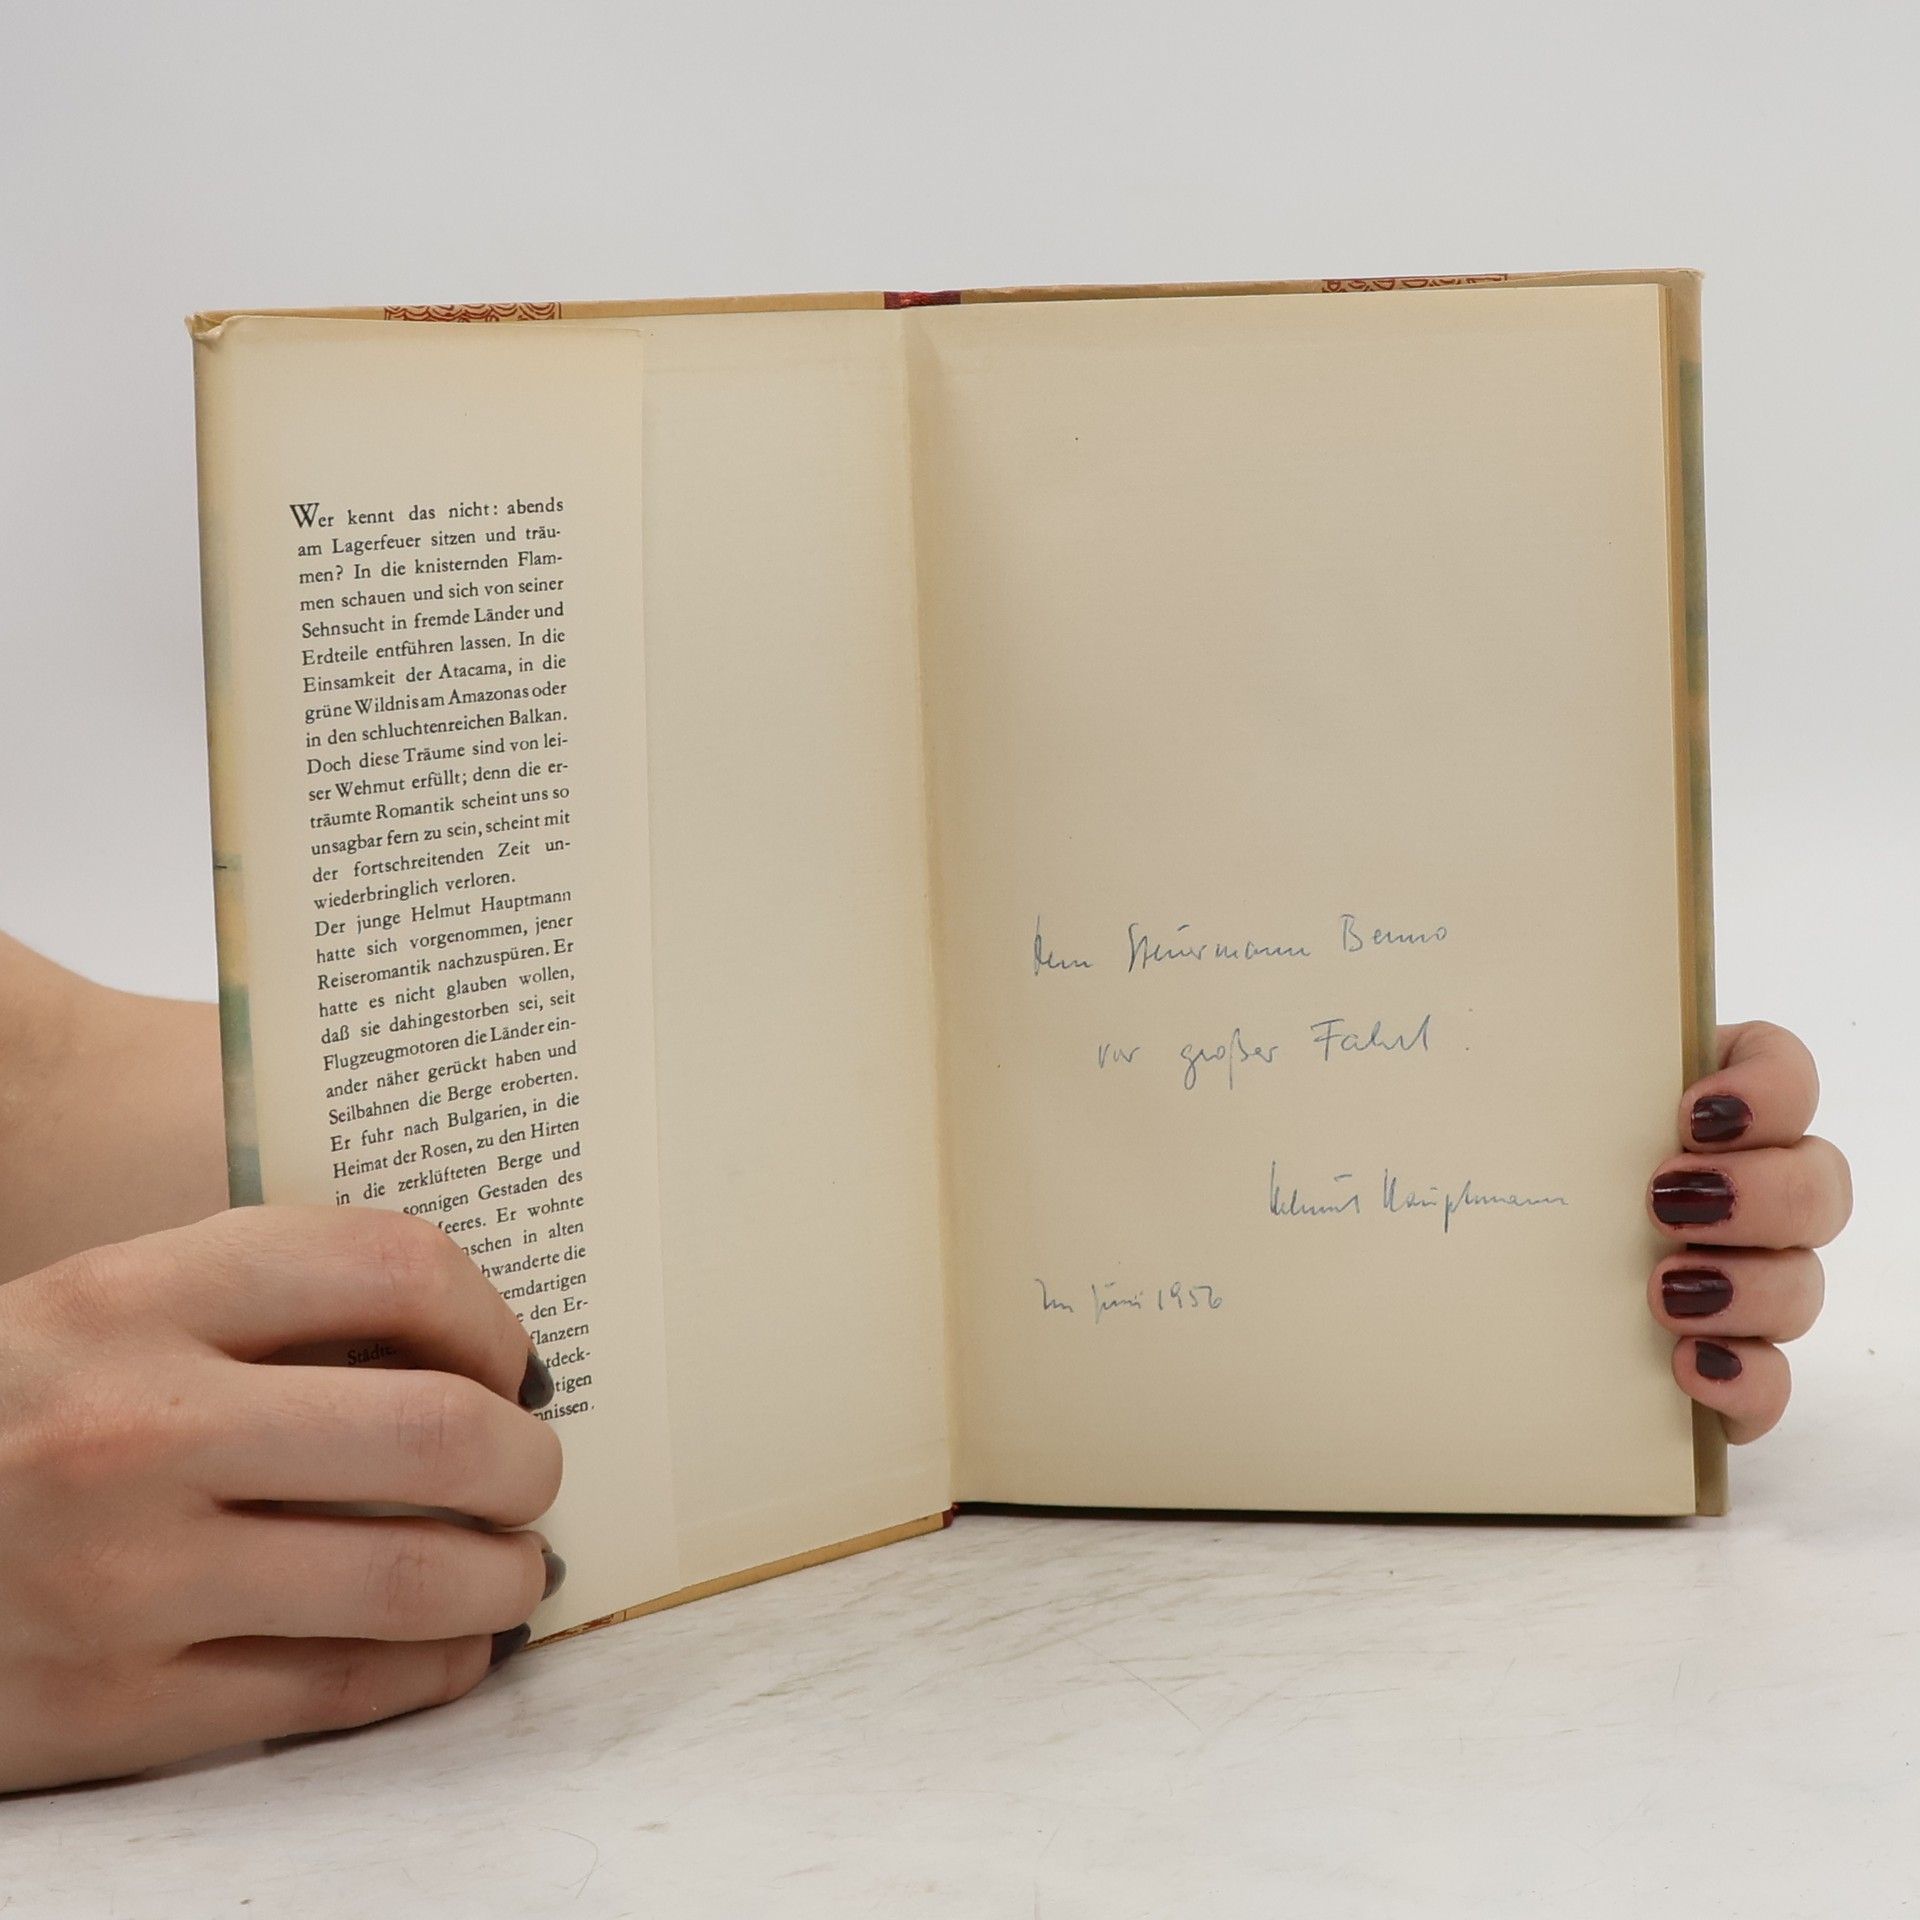 Wer kennt das nicht: abends
am Lagerfeuer sitzen und träu-
men? In die knisternden Flam-
men schauen und sich von seiner
Sehnsucht in fremde Länder und
Erdteile entführen lassen. In die
Einsamkeit der Atacama, in die
grüne Wildnis am Amazonas oder
in den schluchtenreichen Balkan.
Doch diese Träume sind von lei-
ser Wehmut erfüllt; denn die er-
träumte Romantik scheint uns so
unsagbar fern zu sein, scheint mit
der fortschreitenden Zeit un-
wiederbringlich verloren.
Der junge Helmut Hauptmann
hatte sich vorgenommen, jener
Reiseromantik nachzuspüren. Er
hatte es nicht glauben wollen,
daß sie dahingestorben sei, seit
Flugzeugmotoren die Länder ein-
ander näher gerückt haben und
Seilbahnen die Berge eroberten.
Er fuhr nach Bulgarien, in die
Heimat der Rosen, zu den Hirten
in die zerklüfteten Berge und
sonnigen Gestaden des
eeres. Er wohnte
nschen in alten
hwanderte die
remdartigen
e den Er-
flanzern
Städte. tdeck-
tigen
nissen.
Dem Steuermann Benno
vor großer Fahrt.
Helmut Hauptmann
Im Juni 1956